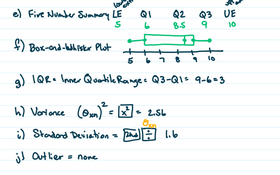 LE Q1 Q2 Q3 UE
e) Five Number Summary 5 6 8.5 9 10
f) Box-and-Whisker Plot
5 6 7 8 9 10
g) IQR = Inner Quatile Range = Q3-Q1 = 9-6=3
h) Variance (σxn)² = x² = 2.56
σxn
i) Standard Deviation = 2nd ÷ 1.6
j) Outlier = none